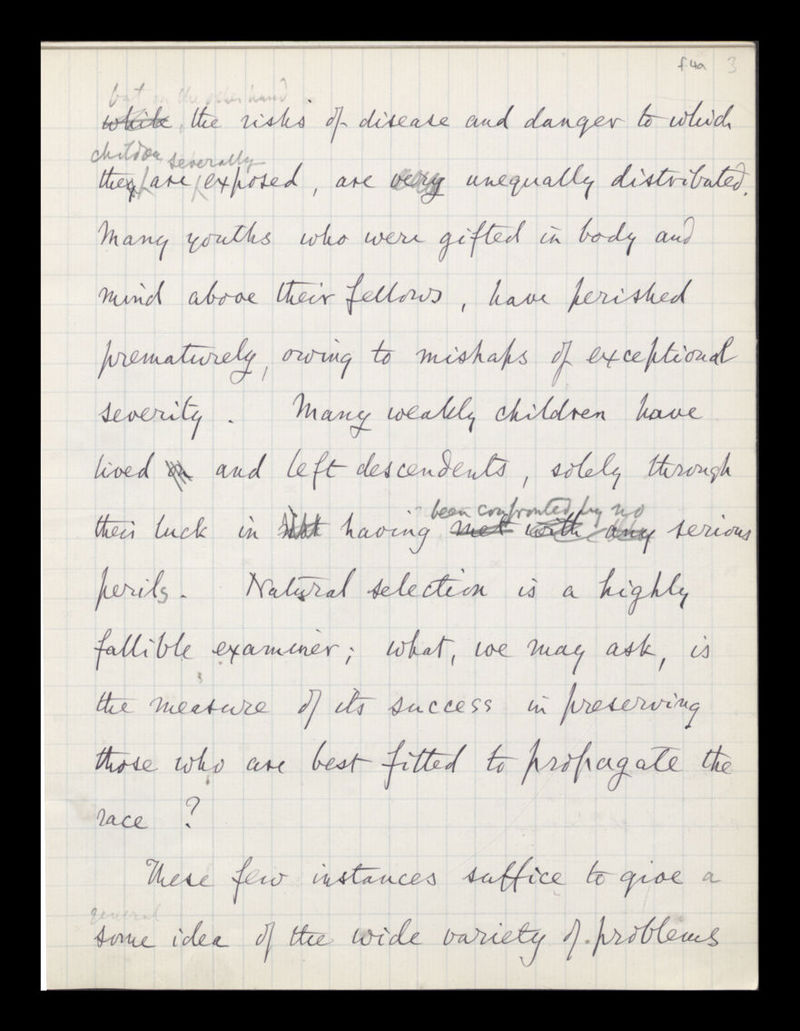 f4a 3
but on the other hand
while, the risks of disease and danger to which
children severally
they are exposed, are very unequally distributed.
Many youths who were gifted in body and
mind above their fellows, have perished
prematurely, owing to mishaps of exceptional
severity. Many weakly children have
lived on and left descendents, solely through
been confronted by no
their luck in not having met with any serious
perils. Natural selection is a highly
fallible examiner; what, we may ask, is
the measure of its success in preserving
those who are best fitted to propagate the
race ?
These few instances suffice to give a
general
some idea of the wide variety of problems